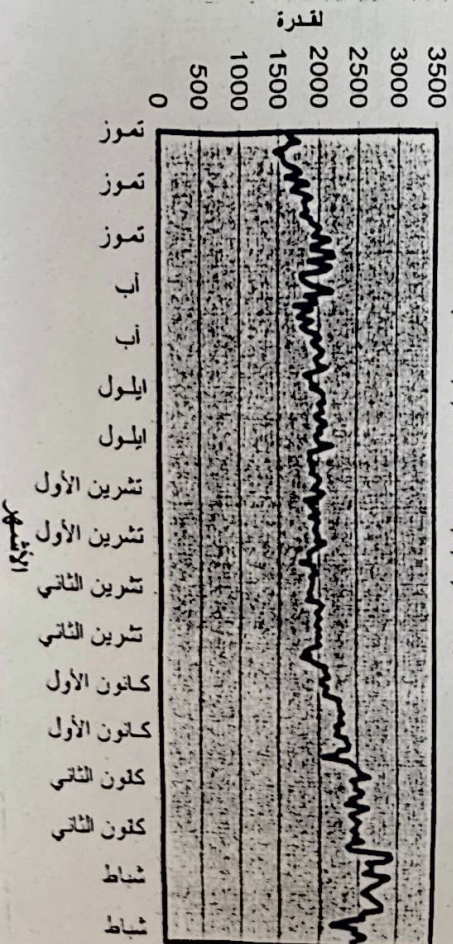 3500
3000
2500
2000
1500
1000
500
0
تموز
تموز
تموز
أب
أب
ايلول
ايلول
تشرين الأول
تشرين الأول
تشرين الثاني
تشرين الثاني
كانون الأول
كانون الأول
كانون الثاني
كانون الثاني
شباط
شباط
الأشهر